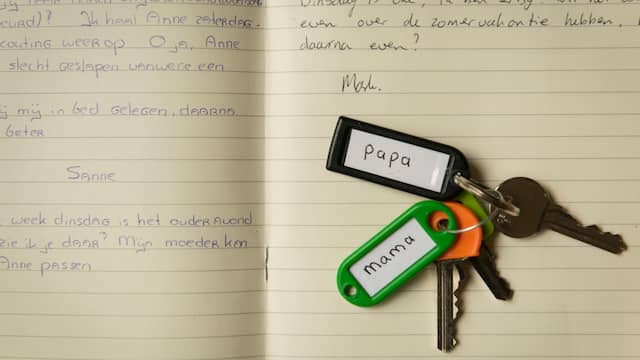 Ik haal Anne zaterdag.
scouting weer op O ja, Anne
slecht geslapen vanwege een
mij in bed gelegen, daarna
beter
Sanne
week dinsdag is het ouderavond
zie ik je daar? Mijn moeder kan
Anne passen
even over de zomervakantie hebben,
daarna even?
Mark.
papa
mama